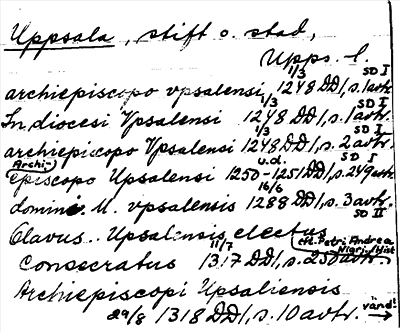 Uppsala, stift o. stad,
Upps. l.
archiepiscopo vpsalensi 1/3 1248 DD 1, s. 1 avtr. SD I
In diocesi Vpsalensi 1/3 1248 DD 1, s. 1 avtr. SD I
archiepiscopo Vpsalensi 1/3 1248 DD 1, s. 2 avtr. SD I
(Archi-)episcopo Upsalensi u.d. 1250-1251 DD 1, s. 249 avtr. SD I
domini U. vpsalensis 16/6 1288 DD 1, s. 3 avtr. SD II
Olavus.. Upsalensis electus
consecratus 11/7 1317 DD 1, s. 250 avtr. (eft. Petri Andreæ Nigri, Hist
Archiepiscopi Upsaliensis
29/8 1318 DD 1, s. 10 avtr. vänd!